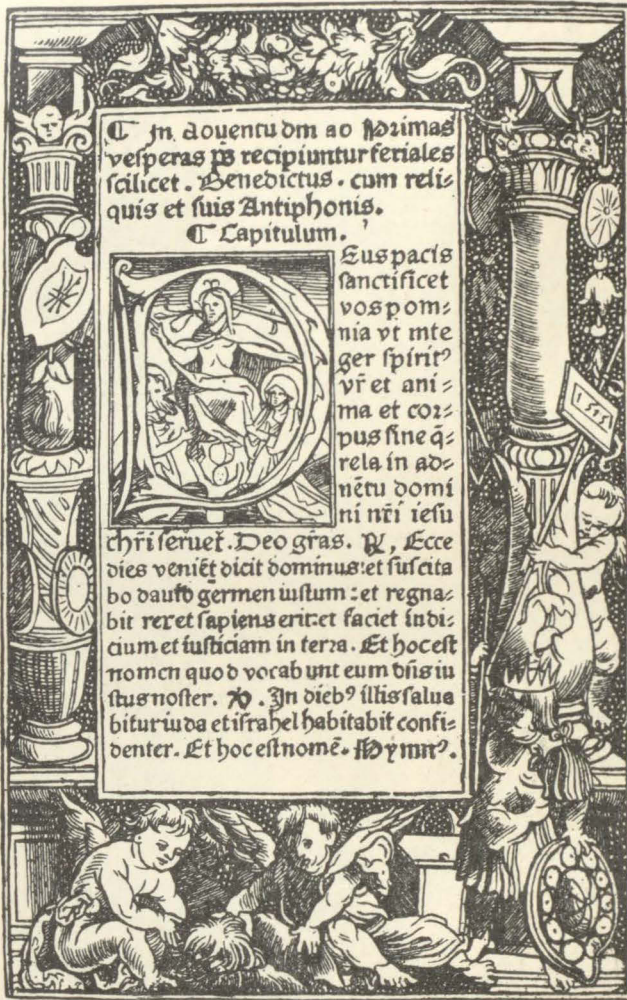 ¶ In aduentu dm̄ ad Primas
vesperas ps̄ recipiuntur feriales
scilicet . Benedictus . cum reli⸗
quis et suis Antiphonis.
¶ Capitulum.
Eus pacis
sanctificet
vos p om⸗
nia vt inte
ger spiritꝰ
vr̄ et ani⸗
ma et cor⸗
pus sine q̄⸗
rela in ad⸗
uētu domi
ni nr̄i iesu
chr̄i seruet̄. Deo gr̄as. ℟, Ecce
dies veniēt dicit dominus: et suscita
bo dauid germen iustum : et regna⸗
bit rex et sapiens erit: et faciet iudi⸗
cium et iusticiam in terra. Et hoc est
nomen quod vocabunt eum dn̄s iu
stus noster. ℣. In diebꝰ illis salua
bitur iuda et israhel habitabit confi⸗
denter. Et hoc est nomē. Hymnꝰ.